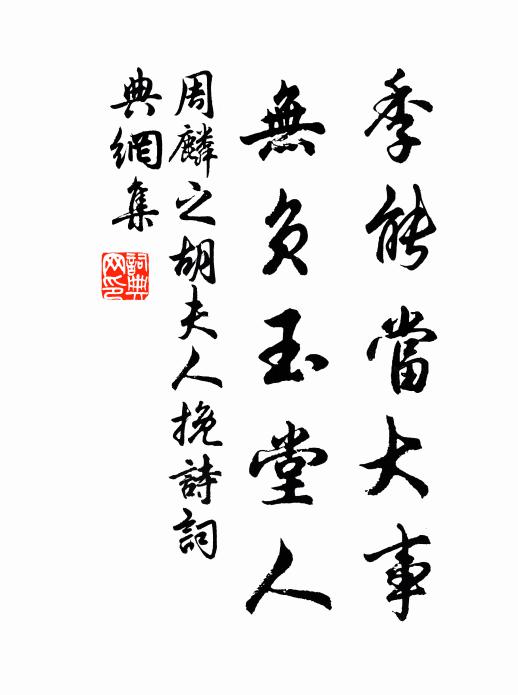 季能當大事
無負玉堂人
周麟之胡夫人挽詩詞
典網集
詞典網印